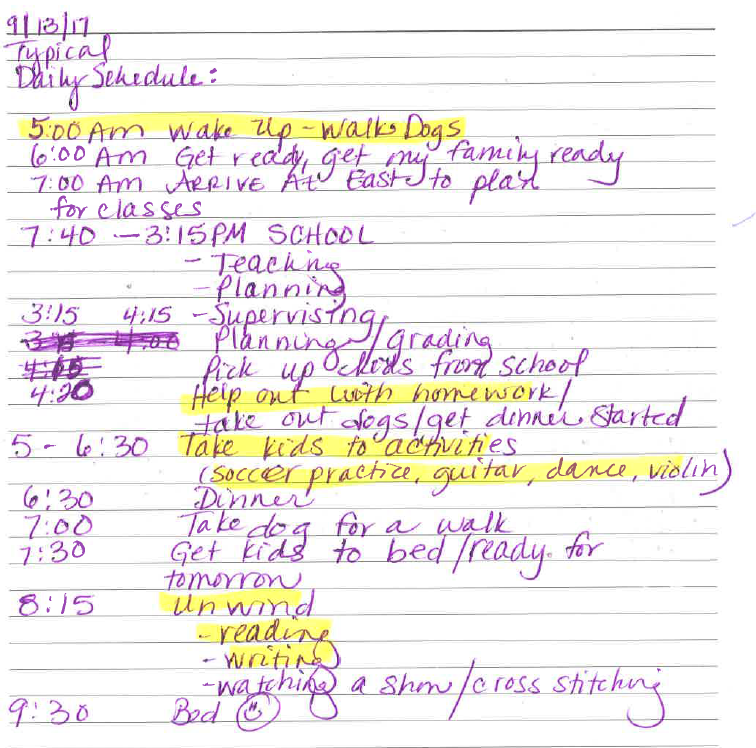 9/13/17
Typical
Daily Schedule:
5:00 Am Wake Up - Walks Dogs
6:00 Am Get ready, get my family ready
7:00 Am ARRIVE At East to plan
for classes
7:40 - 3:15PM SCHOOL
- Teaching
- Planning
3:15 4:15 - Supervising
Planning/grading
Pick up kids from school
4:20 Help out with homework/
take out dogs/get dinner started
5 - 6:30 Take kids to activities
(soccer practice, guitar, dance, violin)
6:30 Dinner
7:00 Take dog for a walk
7:30 Get kids to bed/ready for
tomorrow
8:15 Unwind
- reading
- writing
- watching a show/cross stitching
9:30 Bed